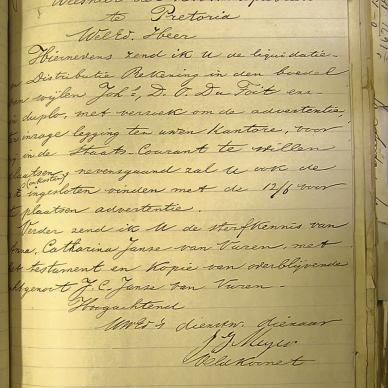 te Pretoria
WelEd. Heer
Hiernevens zend ik U de liquidatie-
Distributie Rekening in den boedel
wijlen Joh.s D. P. Du Toit exe-
duplo, met verzoek om de advertentie,
inzage legging ten uwen Kantore, voor
in de Staats-Courant te willen
plaatsen, nevensgaand zal U ook de
onkosten
ingesloten vinden met de 12/6 voor
plaatsen advertentie.
Verder zend ik U de sterfkennis van
Anna, Catharina Janse van Vuren, met
het testament en Kopie van overblijvende
Echtgenoot J. C. Janse van Vuren.
Hoogachtend
UWEd's dienstw. dienaar
J J Meyer
Veldkornet